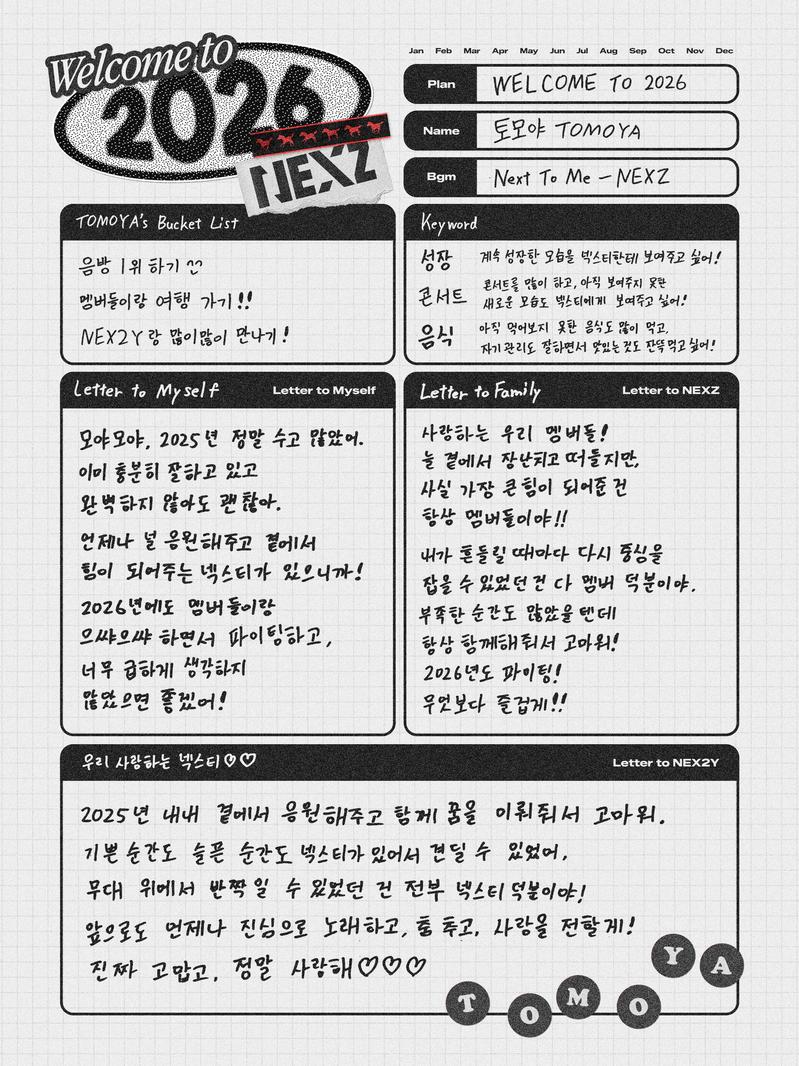 Welcome to
2026
NEXZ
Jan Feb Mar Apr May Jun Jul Aug Sep Oct Nov Dec
Plan WELCOME TO 2026
Name 토모야 TOMOYA
Bgm Next To Me - NEXZ
TOMOYA's Bucket List
음방 1위 하기 ^^
멤버들이랑 여행 가기!!
NEX2Y랑 많이많이 만나기!
Keyword
성장 계속 성장한 모습을 넥스티한테 보여주고 싶어!
콘서트 콘서트를 많이 하고, 아직 보여주지 못한
새로운 모습도 넥스티에게 보여주고 싶어!
음식 아직 먹어보지 못한 음식도 많이 먹고,
자기관리도 잘하면서 맛있는 것도 잔뜩 먹고 싶어!
Letter to Myself Letter to Myself
모야모야, 2025년 정말 수고 많았어.
이미 충분히 잘하고 있고
완벽하지 않아도 괜찮아.
언제나 널 응원해주고 곁에서
힘이 되어주는 넥스티가 있으니까!
2026년에도 멤버들이랑
으쌰으쌰 하면서 파이팅하고,
너무 급하게 생각하지
않았으면 좋겠어!
Letter to Family Letter to NEXZ
사랑하는 우리 멤버들!
늘 곁에서 장난치고 떠들지만,
사실 가장 큰 힘이 되어준 건
항상 멤버들이야!!
내가 흔들릴 때마다 다시 중심을
잡을 수 있었던 건 다 멤버 덕분이야.
부족한 순간도 많았을 텐데
항상 함께해줘서 고마워!
2026년도 파이팅!
무엇보다 즐겁게!!
우리 사랑하는 넥스티♡♡ Letter to NEX2Y
2025년 내내 곁에서 응원해주고 함께 꿈을 이뤄줘서 고마워.
기쁜 순간도 슬픈 순간도 넥스티가 있어서 견딜 수 있었어,
무대 위에서 반짝일 수 있었던 건 전부 넥스티 덕분이야!
앞으로도 언제나 진심으로 노래하고, 춤 추고, 사랑을 전할게!
진짜 고맙고, 정말 사랑해♡♡♡
TOMOYA